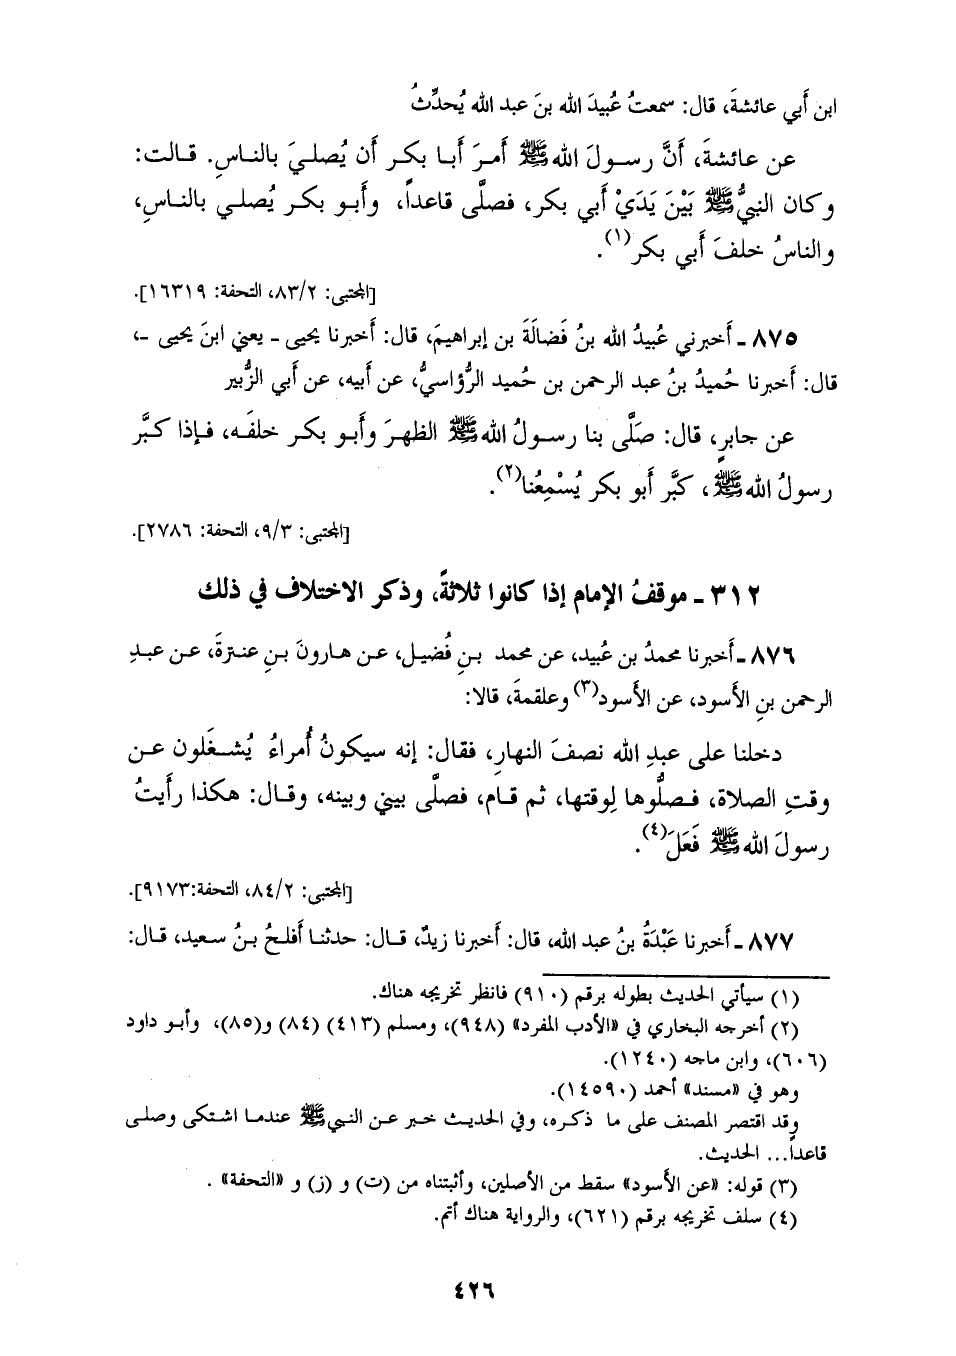 ابن أبي عائشةَ، قال: سمعتُ عُبيدَ الله بنَ عبد الله يُحدِّثُ
عن عائشةَ، أنَّ رسولَ الله ﷺ أمرَ أبا بكر أن يُصليَ بالناسِ. قالت:
وكان النبيُّ ﷺ بَيْنَ يَدَيْ أبي بكر، فصلَّى قاعداً، وأبو بكر يُصلي بالناسِ،
والناسُ خلفَ أبي بكر(١).
[المجتبى: ٨٣/٢، التحفة: ١٦٣١٩].
٨٧٥ - أخبرني عُبيدُ الله بنُ فَضالَةَ بن إبراهيمَ، قال: أخبرنا يحيى - يعني ابنَ يحيى -،
قال: أخبرنا حُميدُ بنُ عبد الرحمن بن حُميد الرُّؤاسيُّ، عن أبيه، عن أبي الزُّبير
عن جابرٍ، قال: صَلَّى بنا رسولُ الله ﷺ الظهرَ وأبو بكر خلفَه، فإذا كبَّر
رسولُ الله ﷺ، كبَّر أبو بكر يُسْمِعُنا(٢).
[المجتبى: ٩/٣، التحفة: ٢٧٨٦].
٣١٢ - موقفُ الإمام إذا كانوا ثلاثةً، وذكر الاختلاف في ذلك
٨٧٦ - أخبرنا محمدُ بن عُبيد، عن محمد بنِ فُضيل، عن هارونَ بنِ عنترةَ، عن عبدِ
الرحمن بنِ الأسود، عن الأسود(٣) وعلقمةَ، قالا:
دخلنا على عبدِ الله نصفَ النهارِ، فقال: إنه سيكونُ أُمراءُ يُشغَلون عن
وقتِ الصلاة، فصلُّوها لِوقتها، ثم قام، فصلَّى بيني وبينه، وقال: هكذا رأيتُ
رسولَ الله ﷺ فَعَلَ(٤).
[المجتبى: ٨٤/٢، التحفة:٩١٧٣].
٨٧٧ - أخبرنا عَبْدَةُ بنُ عبد الله، قال: أخبرنا زيدٌ، قال: حدثنا أفلحُ بنُ سعيد، قال:
(١) سيأتي الحديث بطوله برقم (٩١٠) فانظر تخريجه هناك.
(٢) أخرجه البخاري في «الأدب المفرد» (٩٤٨)، ومسلم (٤١٣) (٨٤) و(٨٥)، وأبو داود
(٦٠٦)، وابن ماجه (١٢٤٠).
وهو في «مسند» أحمد (١٤٥٩٠).
وقد اقتصر المصنف على ما ذكره، وفي الحديث خبر عن النبي ﷺ عندما اشتكى وصلى
قاعداً... الحديث.
(٣) قوله: «عن الأسود» سقط من الأصلين، وأثبتناه من (ت) و (ز) و «التحفة» .
(٤) سلف تخريجه برقم (٦٢١)، والرواية هناك أتم.
٤٢٦